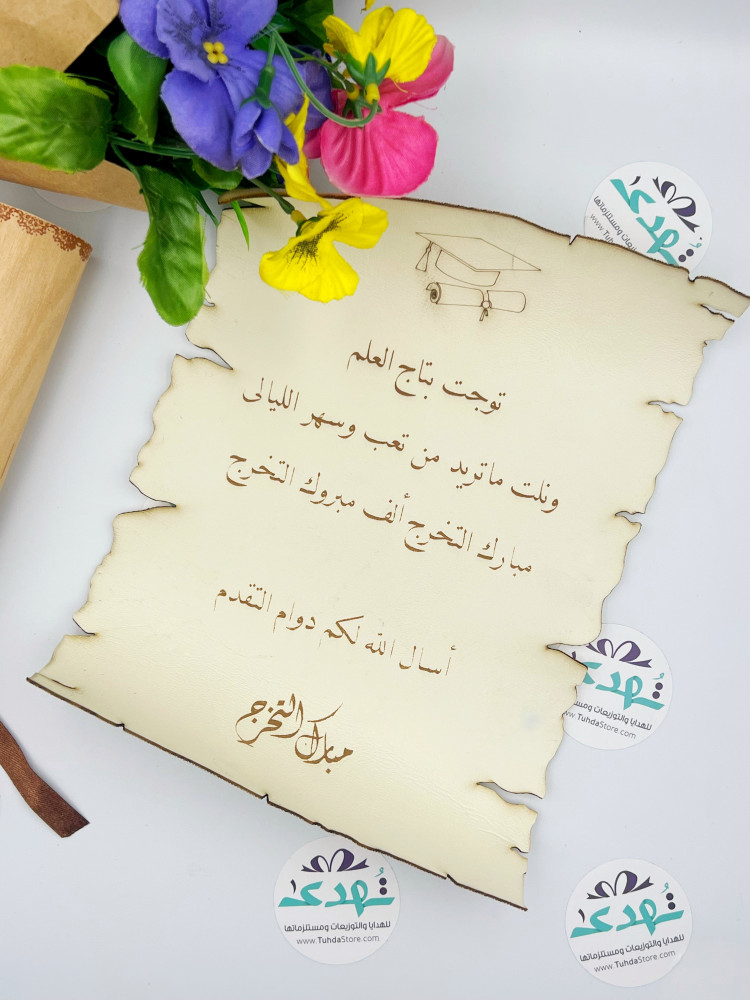 توجت بتاج العلم
ونلت ماتريد من تعب وسهر الليالى
مبارك التخرج ألف مبروك التخرج
أسال الله لكم دوام التقدم
مبارك التخرج
تُهدى
للهدايا والتوزيعات ومستلزماتها
www.Tuhda
تُهدى
للهدايا والتوزيعات ومس
TuhdaStore.com
تُهدى
للهدايا والتوزيعات ومستلزماتها
www.TuhdaStore.com
تُهدى
للهدايا والتوزيعات ومستلزماتها
www.TuhdaStore.com